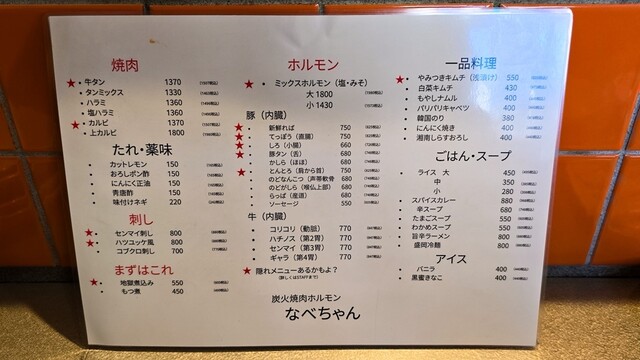 焼肉
★ 牛タン 1370
タンミックス 1330
ハラミ 1360
塩ハラミ 1360
★ カルビ 1370
上カルビ 1800
たれ・薬味
カットレモン 150
おろしポン酢 150
にんにく正油 150
青唐酢 150
味付けネギ 220
刺し
★ センマイ刺し 800
★ ハツユッケ風 800
コブクロ刺し 700
まずはこれ
★ 地獄煮込み 550
もつ煮 450
ホルモン
★ ミックスホルモン(塩・みそ)
大 1800
小 1430
豚(内臓)
★ 新鮮ればー 750
★ てっぽう(直腸) 750
★ しろ(小腸) 660
★ 豚タン(舌) 680
かしら(ほほ) 680
★ とんとろ(肩から首) 750
のどなんこつ(声帯軟骨 680
のどがしら(喉仏上部) 680
らっぱ(産道) 680
ソーセージ 550
牛(内臓)
コリコリ(動脈) 770
ハチノス(第2胃) 770
センマイ(第3胃) 770
ギャラ(第4胃) 770
★ 隠れメニューあるかもよ?
(詳しくはSTAFFまで)
炭火焼肉ホルモン
なべちゃん
一品料理
★ やみつきキムチ(浅漬け) 550
白菜キムチ 430
もやしナムル 400
パリパリキャベツ 400
韓国のり 380
にんにく焼き 400
湘南しらすおろし 400
ごはん・スープ
ライス 大 450
中 350
小 280
スパイスカレー 880
辛スープ 680
たまごスープ 550
わかめスープ 550
旨辛ラーメン 800
盛岡冷麺 800
アイス
バニラ 400
黒蜜きなこ 400